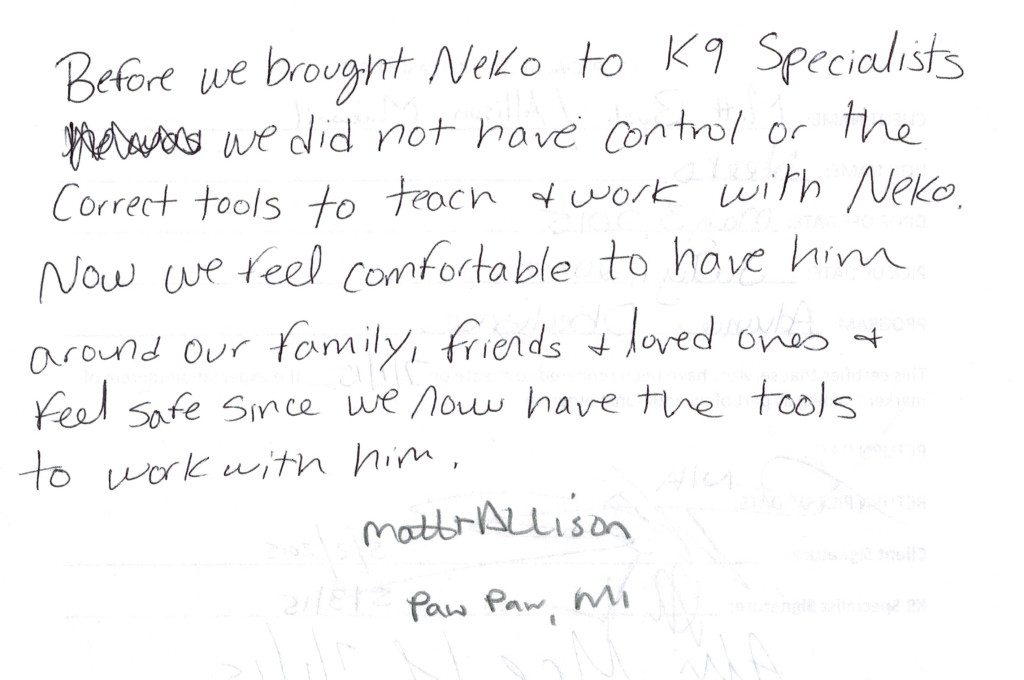 Before we brought Neko to K9 Specialists
we did not have control or the
correct tools to teach & work with Neko.
Now we feel comfortable to have him
around our family, friends & loved ones &
feel safe since we now have the tools
to work with him.
Matt + Allison
Paw Paw, MI